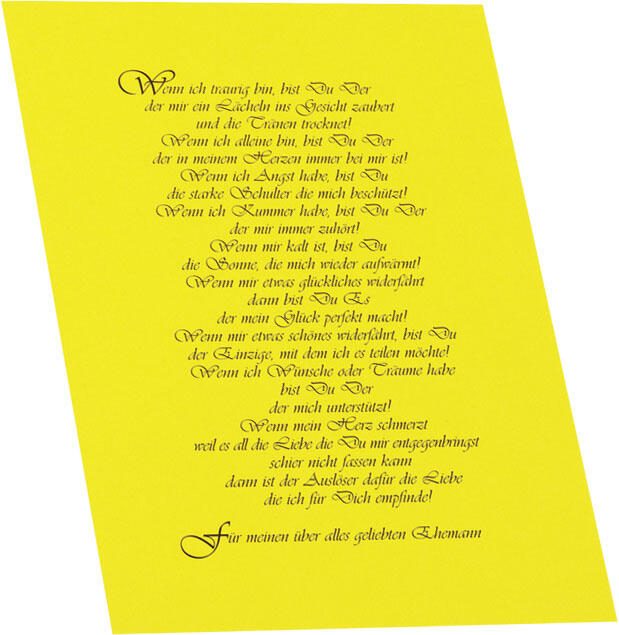 Wenn ich traurig bin, bist Du Der
der mir ein Lächeln ins Gesicht zaubert
und die Tränen trocknet!
Wenn ich alleine bin, bist Du Der
der in meinem Herzen immer bei mir ist!
Wenn ich Angst habe, bist Du
die starke Schulter die mich beschützt!
Wenn ich Kummer habe, bist Du Der
der mir immer zuhört!
Wenn mir kalt ist, bist Du
die Sonne, die mich wieder aufwärmt!
Wenn mir etwas glückliches widerfährt
dann bist Du Es
der mein Glück perfekt macht!
Wenn mir etwas schönes widerfährt, bist Du
der Einzige, mit dem ich es teilen möchte!
Wenn ich Wünsche oder Träume habe
bist Du Der
der mich unterstützt!
Wenn mein Herz schmerzt
weil es all die Liebe die Du mir entgegenbringst
schier nicht fassen kann
dann ist der Auslöser dafür die Liebe
die ich für Dich empfinde!
Für meinen über alles geliebten Ehemann